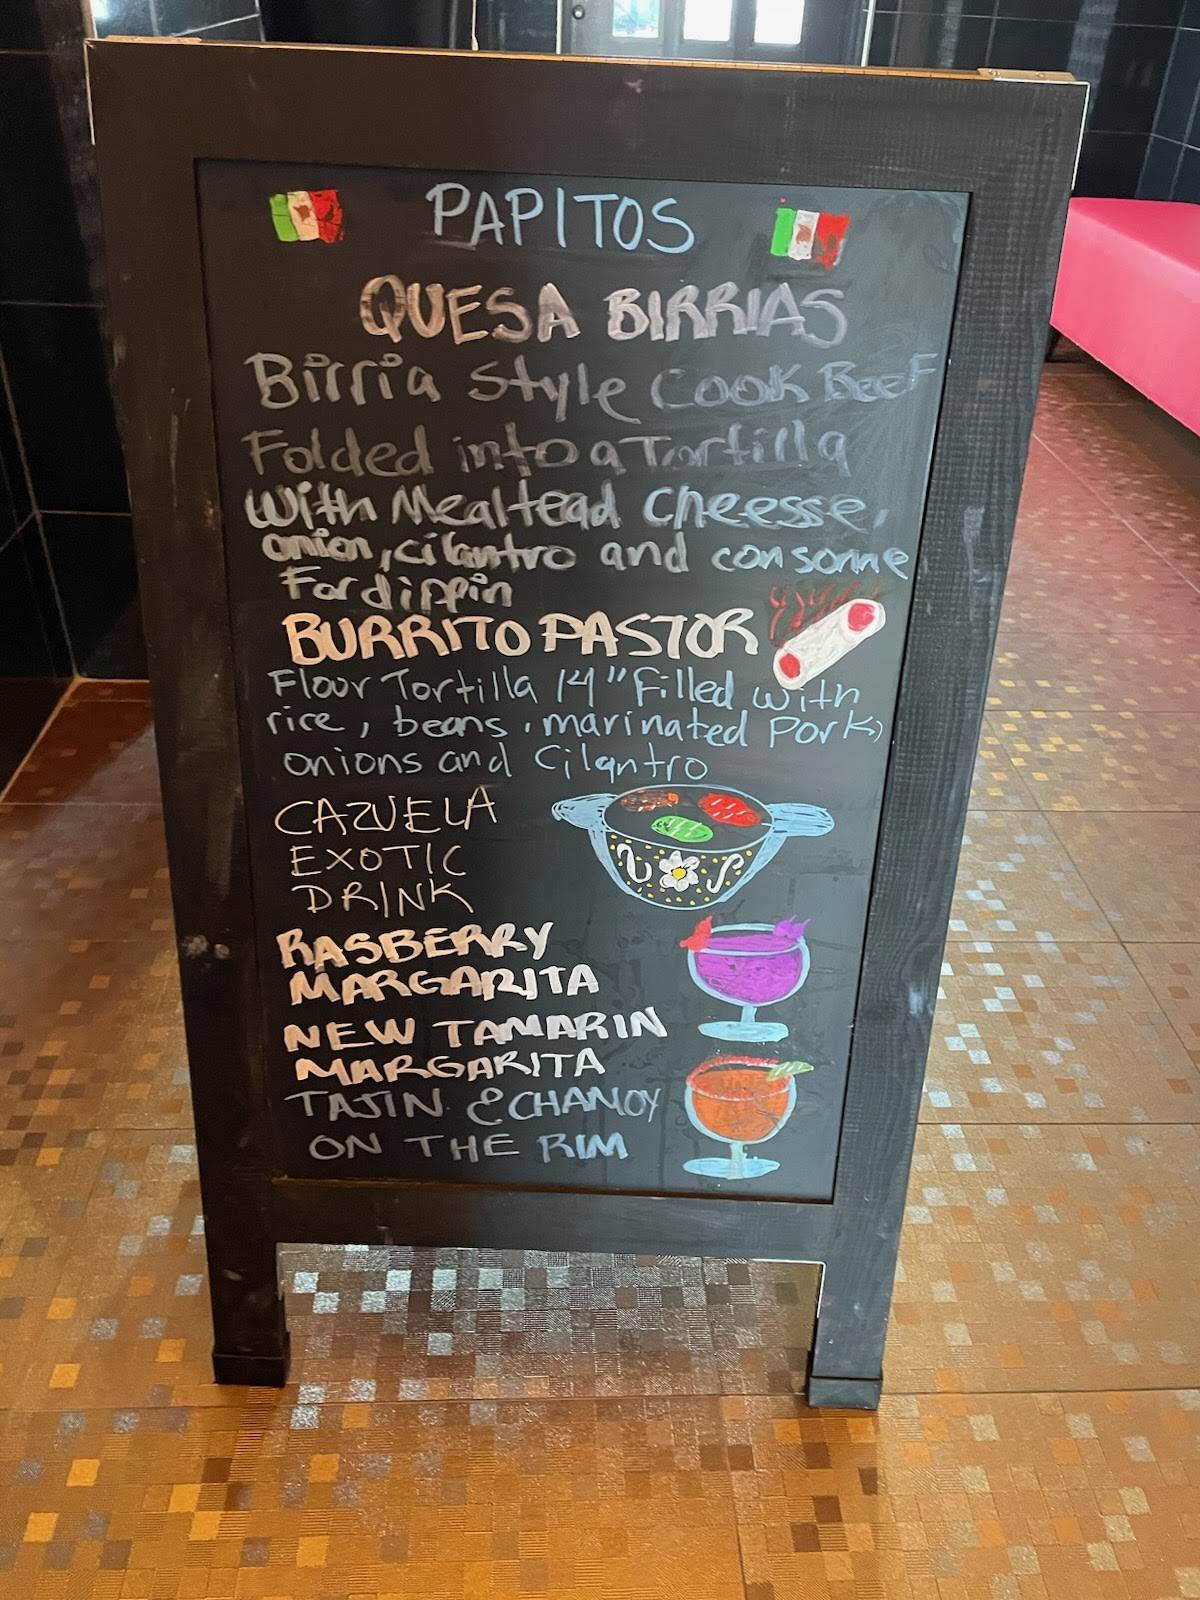 PAPITOS
QUESA BIRRIAS
Birria Style Cook BEEF
Folded into a Tortilla
with Mealtead cheesse,
onion, cilantro and consomme
For dippin
BURRITO PASTOR
Flour Tortilla 14" Filled with
rice, beans, marinated Pork,
onions and Cilantro
CAZUELA
EXOTIC
DRINK
RASBERRY
MARGARITA
NEW TAMARIN
MARGARITA
TAJIN & CHAMOY
ON THE RIM